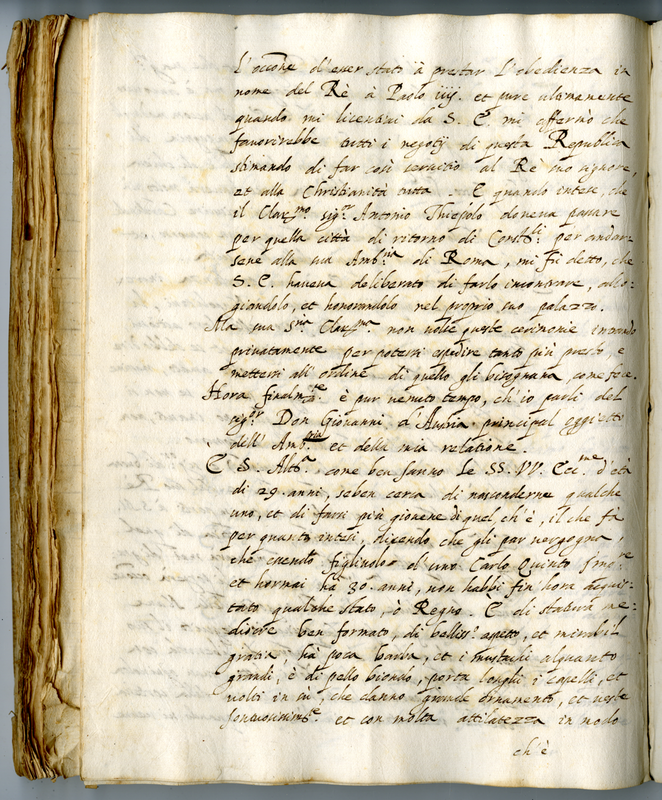 L'occne d'esser stato à prestar l'obedienza in
nome del Rè à Paolo iiij. et pure ultimamente
quando mi licentiai da S. E. mi offermò che
favorirebbe tutti i negotij di questa Republica
stimando di far così servitio al Re suo signore,
et alla Christianità tutta. E quando intese, che
il Clarmo sigr Antonio Thiepolo doveva passare
per quella città di ritorno di Constli: per andar-
sene alla sua Ambria di Roma, mi fù detto, che
S. E. haveva deliberato di farlo incontrare, allo-
giandolo, et honorandolo nel proprio suo palazzo.
Ma sua Sria Clarma non volse queste cerimonie intrando
privatamente per potersi espedire tanto più presto, e
mettersi all'ordine di quello gli bisognava, come fece.
Hora finalmte è pur venuto tempo, ch'io parli del
sigor Don Giovanni d'Austria principal oggietto
dell'Ambria et della mia relatione.
È S. Altza come ben sanno le SS. VV. Eccme d'età
di 29. anni, seben cerca di nasconderne qualche
uno, et di farsi più giovene di quel ch'è, il che fà
per quanto intesi, dicendo che gli par vergogna,
che essendo figliuolo d'uno Carlo Quinto Imore
et hormai hà 30. anni, non habbi fin'hora acqui-
stato qualche stato, ò Regno. È di statura me-
diocre ben formato, di bellisso aspetto, et mirabil
gratia, hà poca barba, et i mustachi alquanto
grandi, è di pello biondo, porta longhi i capelli, et
volti in sù, che danno grande ornamento, et veste
sontuosamte et con molta attilatezza in modo
ch'è